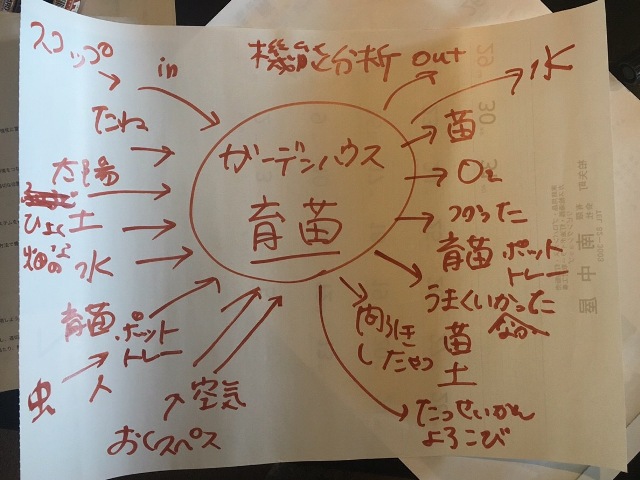 スコップ
in
機能分析 out
水
たね
苗
ガーデンハウス
育苗
太陽
O₂
ひよく土
つかった
育苗 ポット
トレー
畑の 水
うまくいかった
間引き
したやつ
苗
土
育苗 ポット
トレー
虫
人
空気
おくスペス
たっせいかん
よろこび
29
30